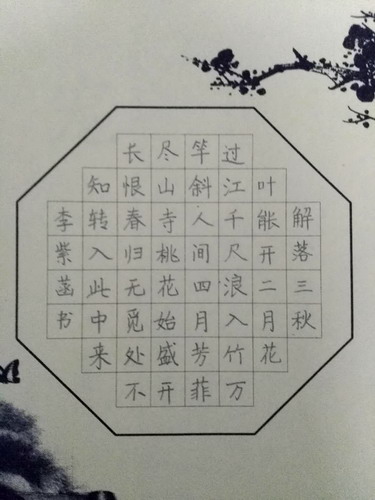 解落三秋
叶能开二月花
过江千尺浪入竹万
竿斜人间四月芳菲
尽山寺桃花始盛开
长恨春归无觅处不
知转入此中来
李紫菡书